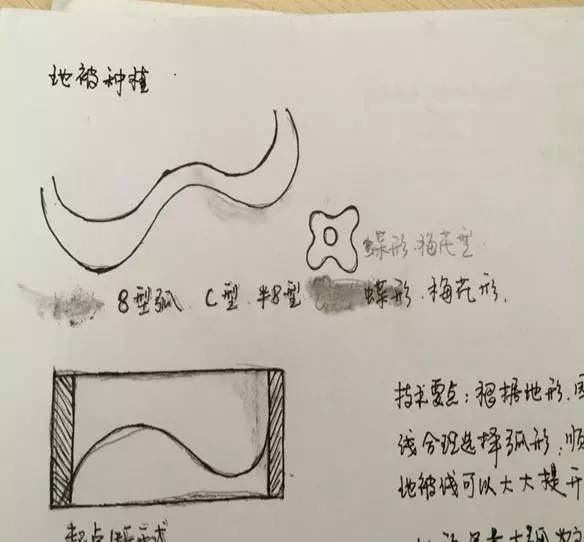 地被种植
蝶形.梅花型
8型弧. C型. 半8型 蝶形.梅花形.
技术要点：根据地形.
线合理选择弧形.顺
地被线可以大大提升
起点